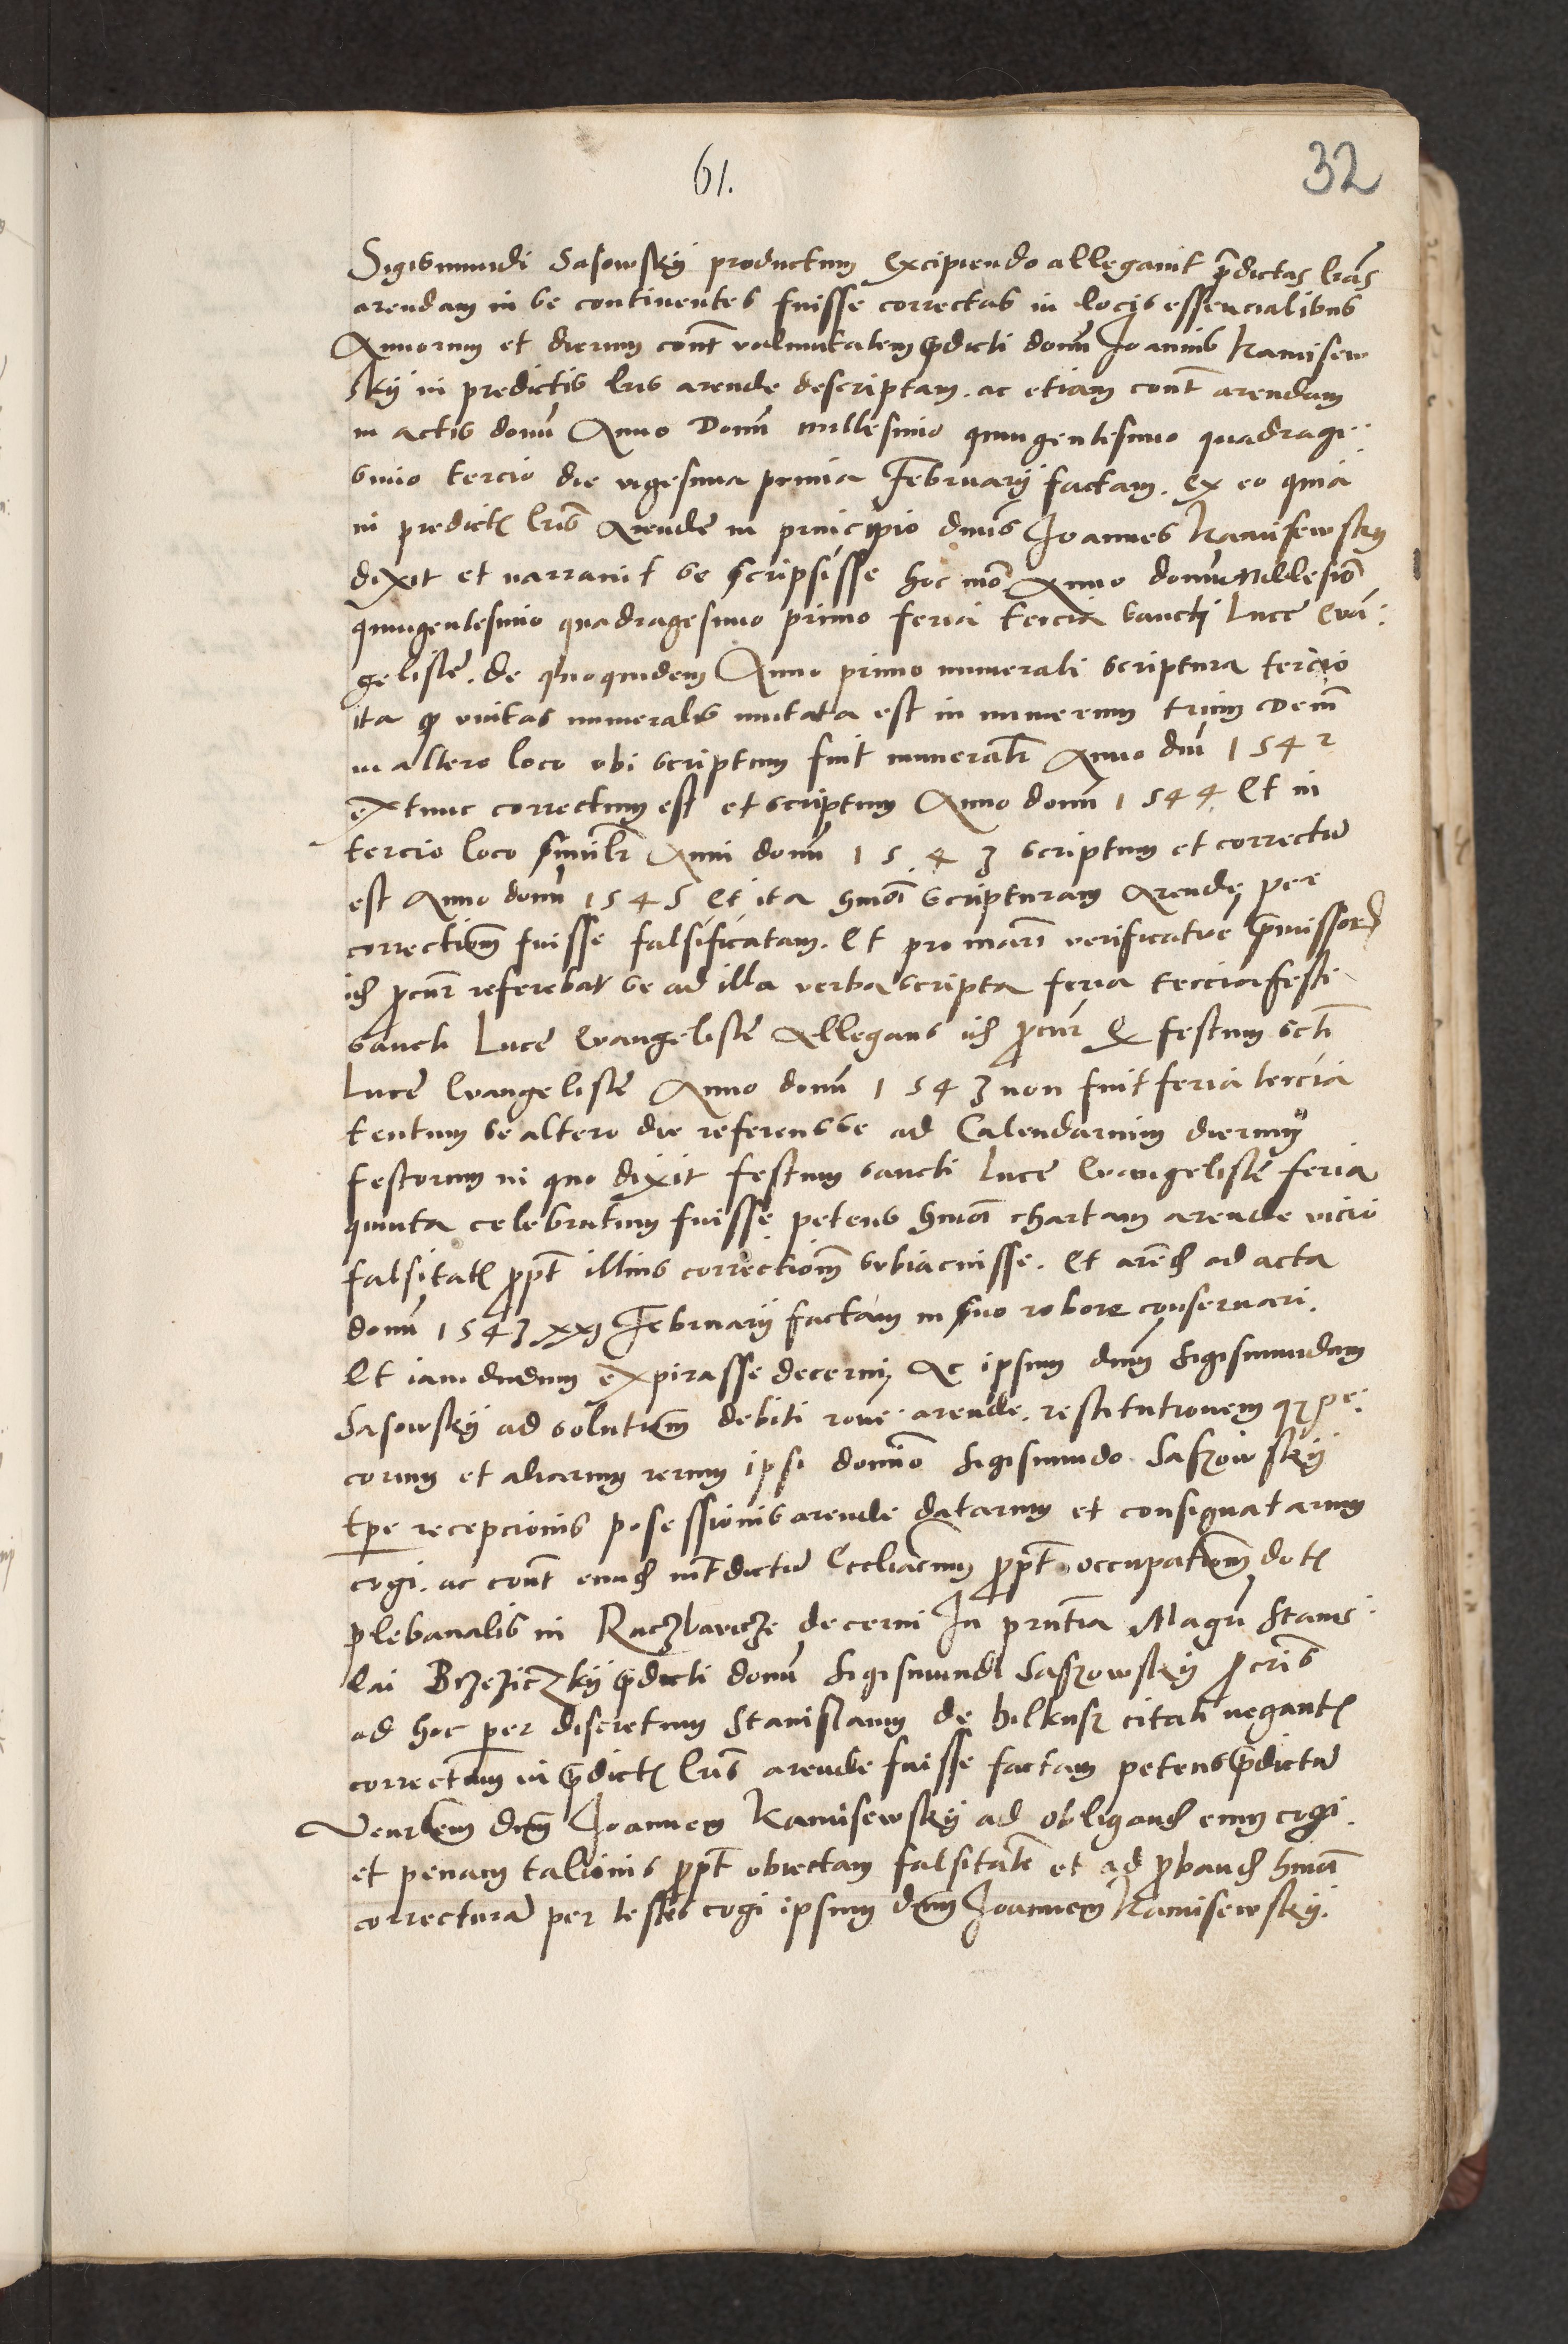 61.
32
Sigismundi Sasowsky productum excipiendo allegavit p̄dictas l̄ras
arendam in se continentes fuisse correctas in locis essencialibus
Annorum et dierum cont̄ voluntatem p̄dicti domī Joannis Kamisew
sky in predictis lris arende descriptam. ac etiam cont̄ arendam
in actis domī Anno Domī millesimo quingentesimo quadrage:
simo tercio die vigesima prima Februarij factam. Ex eo quia
in predictꝭ lris Arende in principio dn̄us Joannes Kamisewsky
dixit et narravit se scripsisse hoc mō Anno domī Millesīo
quingentesimo quadragesimo primo feria tercia Sancti Luce Evā:
geliste. de quoquidem Anno primo numerali scriptura tercio
ita ꝙ unitas numeralis mutata est in numerum trium Dem̄
in altero loco ubi scriptum fuit numeralr̄ Anno dn̄i 1542
extunc correctum est et scriptum Anno domī 1544 Et in
tercio loco similr̄ Anni domī 1543 scriptum et correctū
est Anno domī 1545 Et ita hmōi scripturam Arende per
correctiōm fuisse falsificatam. Et pro maiī verificatōe p̄missorꝝ
id̄ ꝓcur̄ referebat se ad illa verba scripta feria tercia festi
sancti Luce Evangeliste Allegans id̄ ꝓcur̄ ꝙ festum sctī
Luce Evangeliste Anno domī 1543 non fuit feria tercia
tentum se altero die referens se ad Calendarium dierum
festorum in quo dixit festum sancti Luce Evangeliste feria
quinta celebratum fuisse petens hmōi chartam arende vicio
falsitatꝭ ꝓpt̄ illius correctiōm subiacuisse. Et arēd̄ ad acta
domī 1543 xxj Februarij factam in suo robore conservari.
Et iam dudum expirasse decerni, Ac ipsum dn̄m Sigismundum
Sasowsky ad solutiōm debiti rōne arende. restitutionem
corum et aliarum rerum ipsi domīo Sigismundo Saszowsky
tpe recepcionis posessionis arende datarum et consignatarum
cogi. ac cont̄ eund̄ int̄dictū Eccliācum ꝓpt̄ occupatiōm dotꝭ
plebanalis in Raczlavicze decerni In pn̄tia Magrī Stanis
lai Brzeziczky p̄dicti domī Sigismundi Saszowsky ꝓcr̄is
ad hoc per discretum Stanislaum de hilkusz citati negantꝭ
correctam in p̄dictꝭ lris arende fuisse factam petens p̄dictū
Venrlem dn̄m Joannem Kamisewsky ad obligand̄ eum cogi.
et penam talionis ꝓpt̄ obiectam falsitatē et ad ꝓband̄ hmōi
correcturā per testes cogi ipsum dn̄m Joannem Kamisewsky.